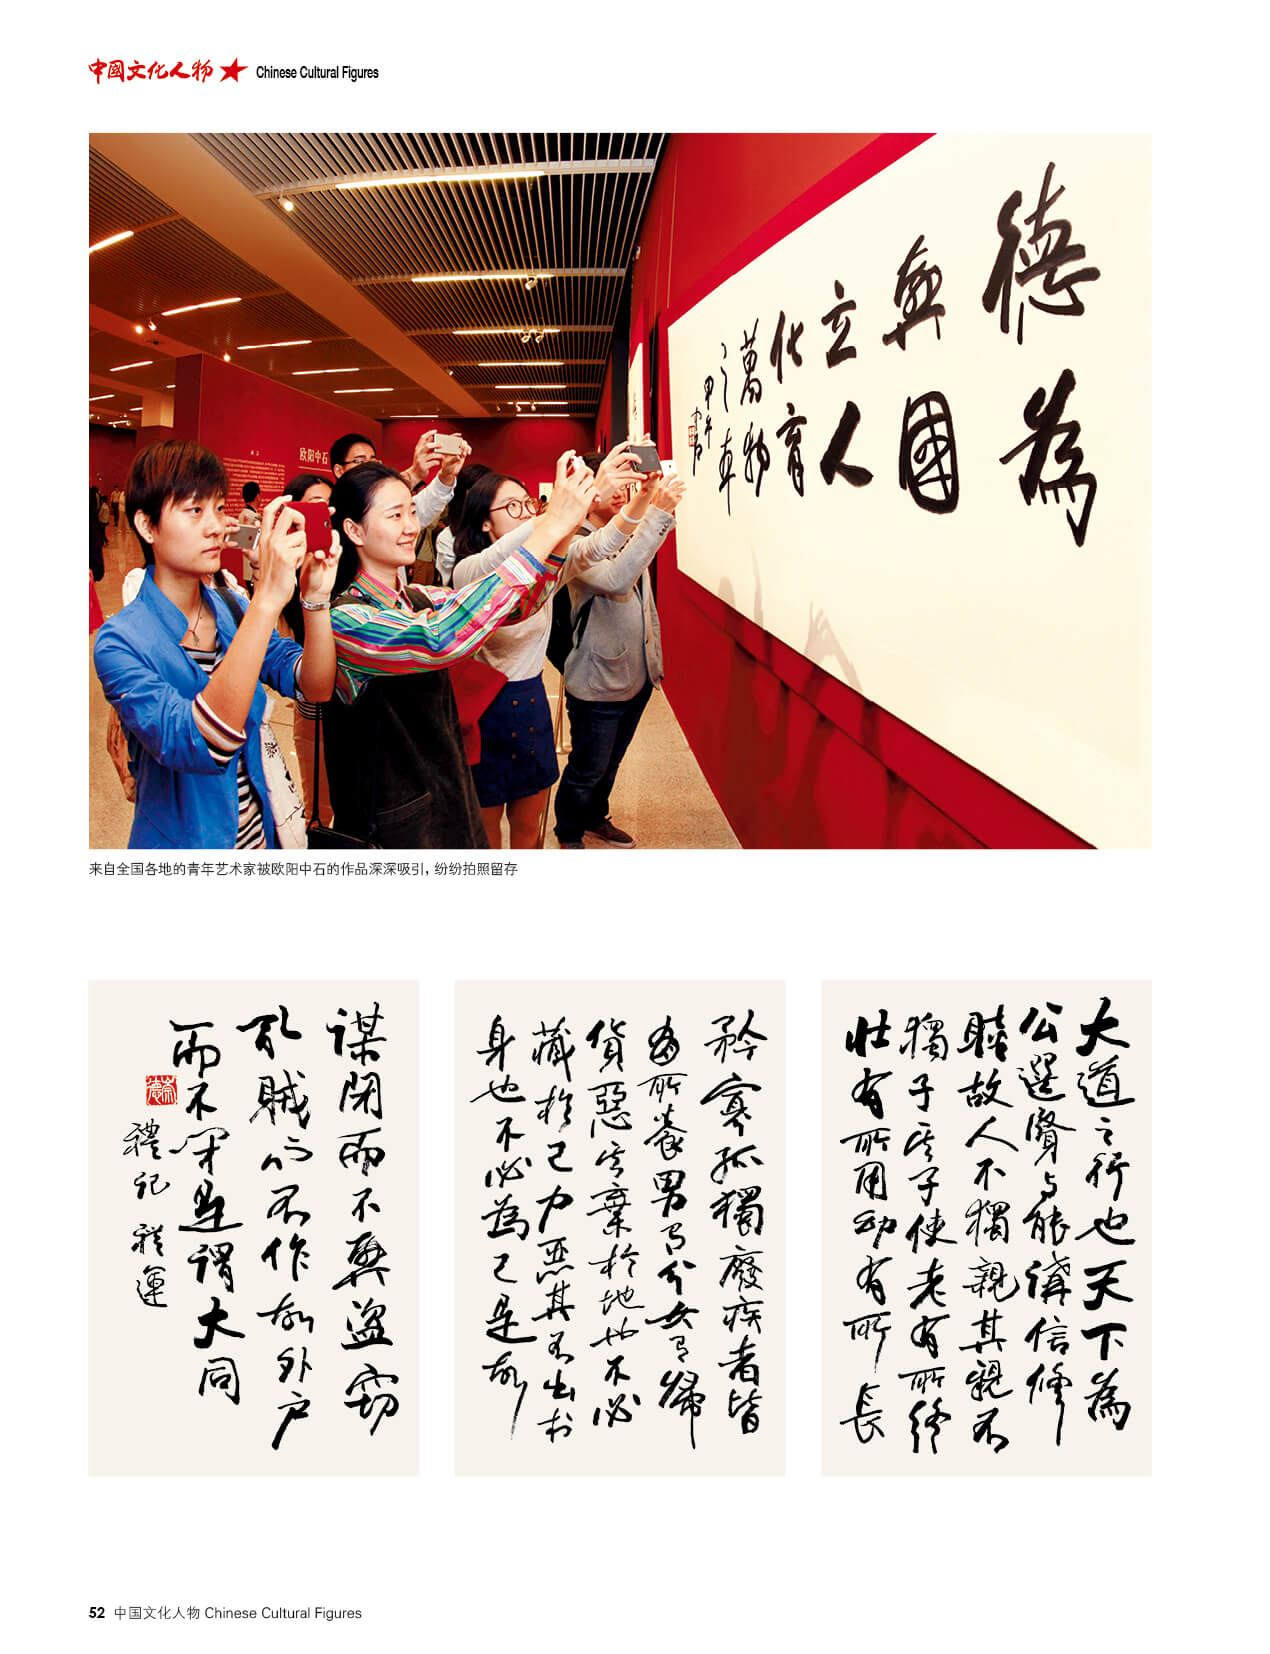 中國文化人物 Chinese Cultural Figures
德為
興國
立人
化育
萬物
甲午
欧阳中石
来自全国各地的青年艺术家被欧阳中石的作品深深吸引，纷纷拍照留存
大道之行也天下為
公選賢与能講信修
睦故人不獨親其親不
獨子其子使老有所終
壯有所用幼有所長
矜寡孤獨廢疾者皆
有所養男有分女有歸
貨惡其棄於地也不必
藏於己力惡其不出於
身也不必為己是故
謀閉而不興盜竊
亂賊而不作故外户
而不閉是謂大同
禮記 禮運
崇德
52 中国文化人物 Chinese Cultural Figures